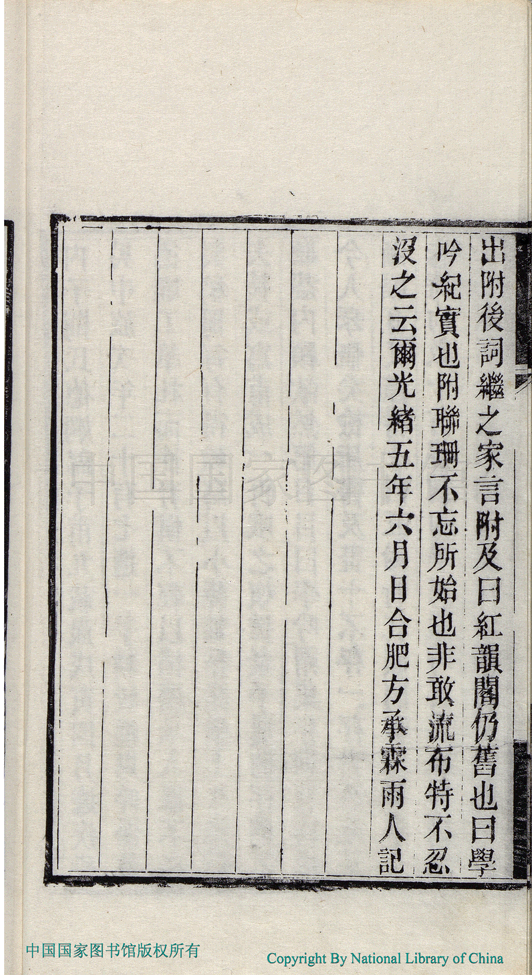 出附後詞繼之家言附及曰紅韻閣仍舊也曰學
吟紀實也附聯珊不忘所始也非敢流布特不忍
沒之云爾光緒五年六月日合肥方承霖雨人記
中国国家图书馆版权所有
Copyright By National Library of China